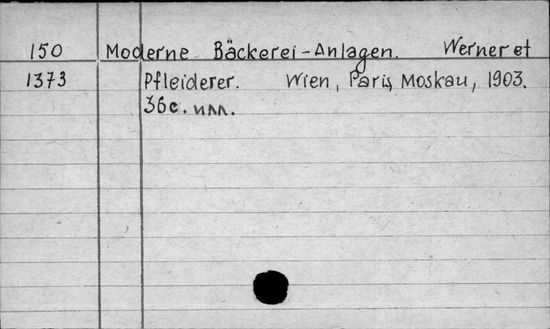 150 Moderne Bäckerei-Anlagen. Werner et
1373 Pfleiderer. Wien, Paris, Moskau, 1903.
36 с. илл.